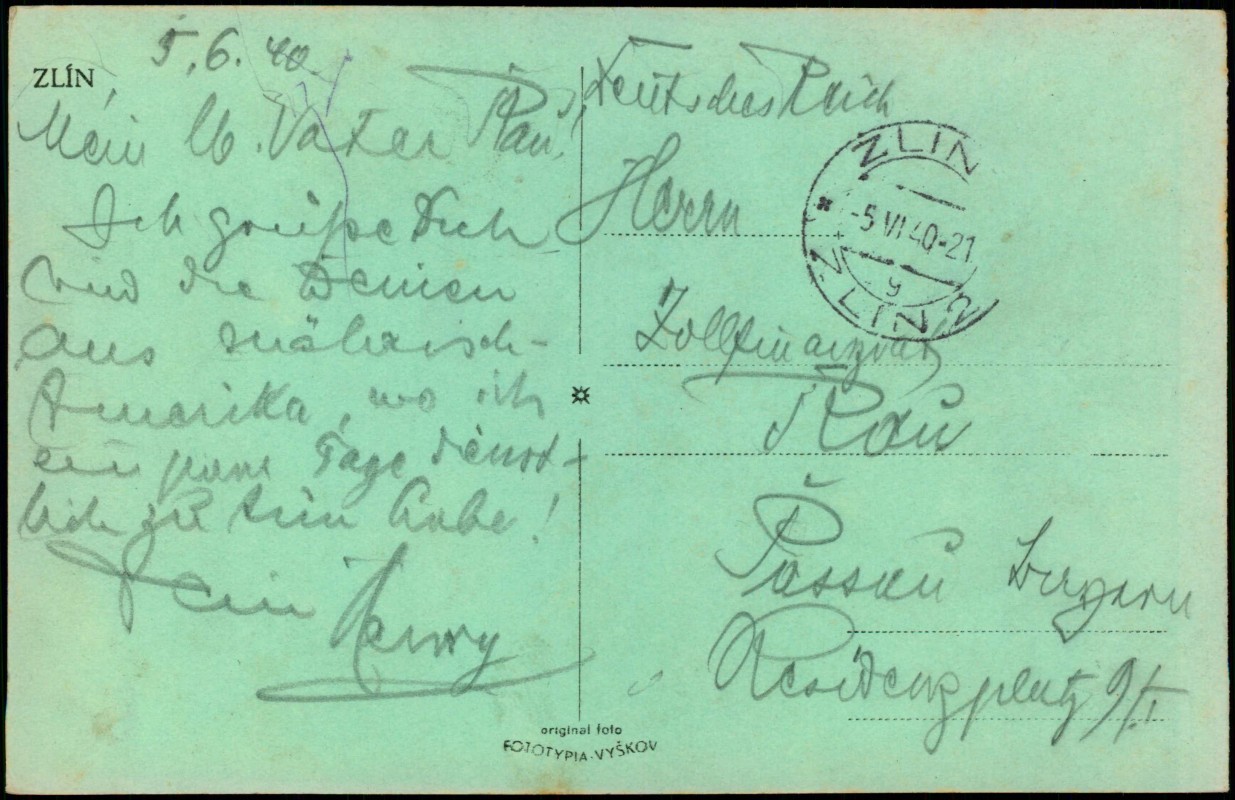 ZLÍN
5.6.40
Mein lb. Vater Rau!
Ich grüße Dich
und die Deinen
aus mährisch-
Amerika, wo ich
ein paar Tage dienst-
lich zu tun habe!
Dein
Deutsches Reich
Herrn
Zollfinanzrat
Rau
Passau Bayern
Residenzplatz 9/I
ZLIN
-5 VI 40-21
9
ZLIN 2
original foto
FOTOTYPIA-VYŠKOV